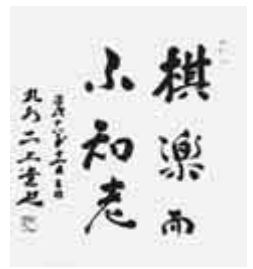 棋楽而
不知老
九段 二上達也